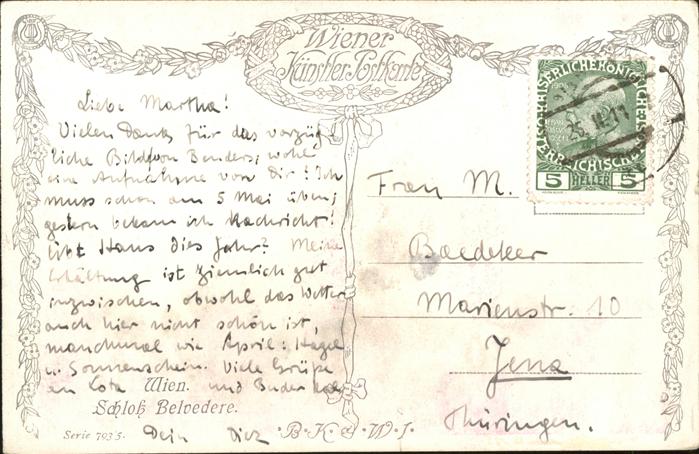 Wiener
Künstler Postkarte
Liebe Martha!
Vielen Dank für das vorzüg-
liche Bild von Benders, wohl
eine Aufnahme von Dir! Ich
muss schon am 5 Mai üben,
gestern bekam ich Nachricht!
Übt Hans dies Jahr? Meine
Erkältung ist ziemlich gut
inzwischen, obwohl das Wetter
auch hier nicht schön ist,
manchmal wie April: Hagel
u. Sonnenschein. Viele Grüße
an Lota und
Dein
Wien.
Schloß Belvedere.
Serie 793/5.
B.K.W.I.
KAISERLICHE KÖNIGLICHE
ÖSTERREICHISCHE
5 HELLER 5
Frau M.
Baedeker
Marienstr. 10
Jena
Thüringen.